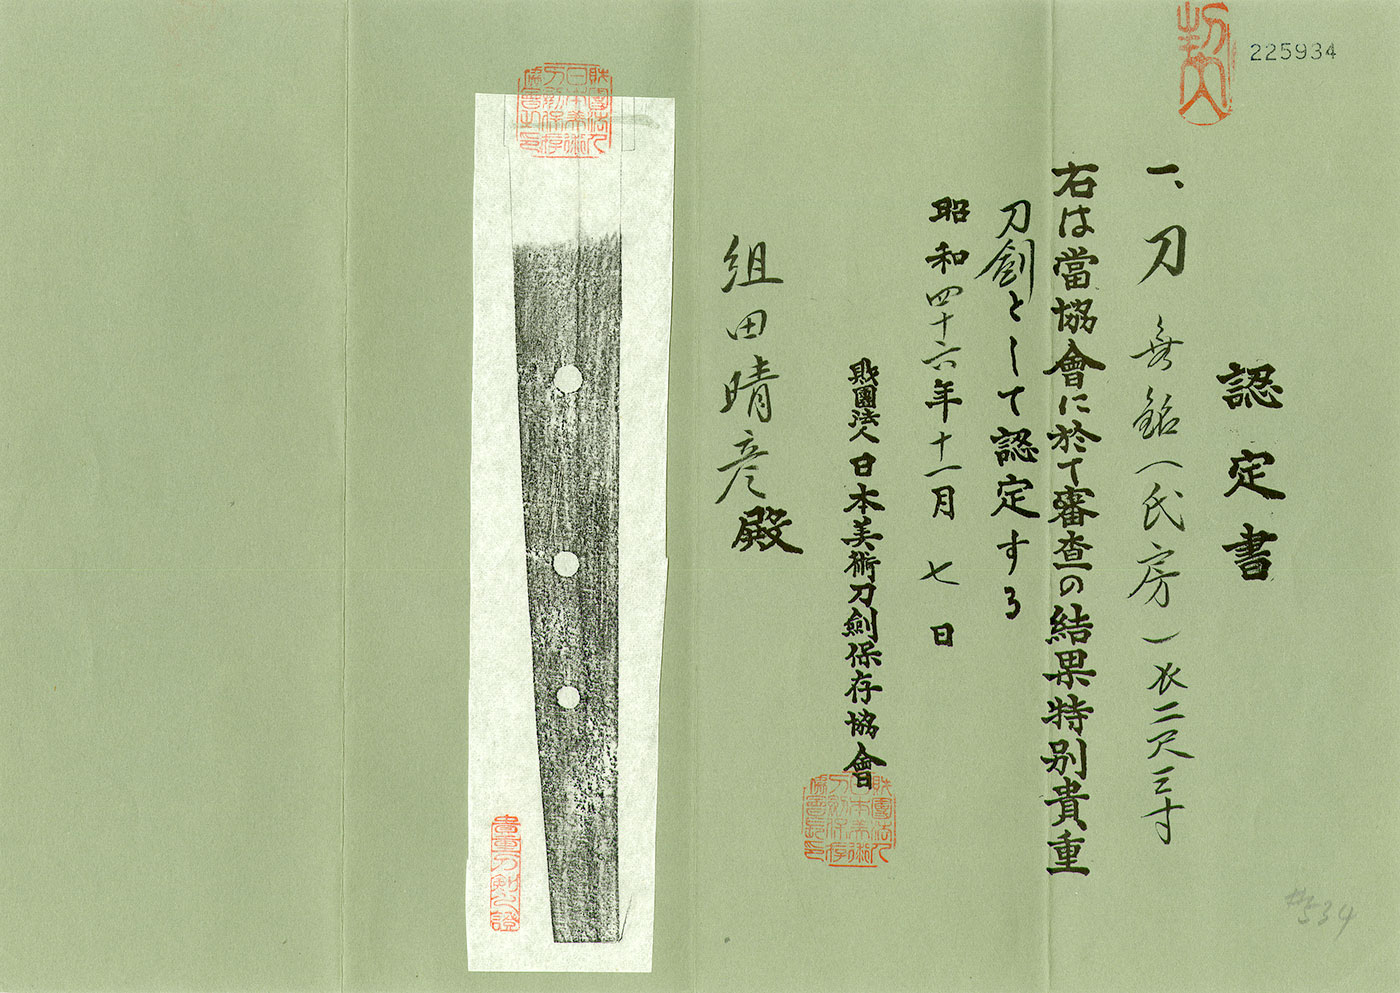 225934
認定書
一、刀 無銘(氏房)長二尺三寸
右は當協會に於て審査の結果特別貴重
刀劍として認定する
昭和四十六年十一月七日
財團法人日本美術刀劍保存協會
財團法人日本美術刀剣保存協會長印
組田晴彦殿
財團法人日本美術刀剣保存協會之印
貴重刀剣之證